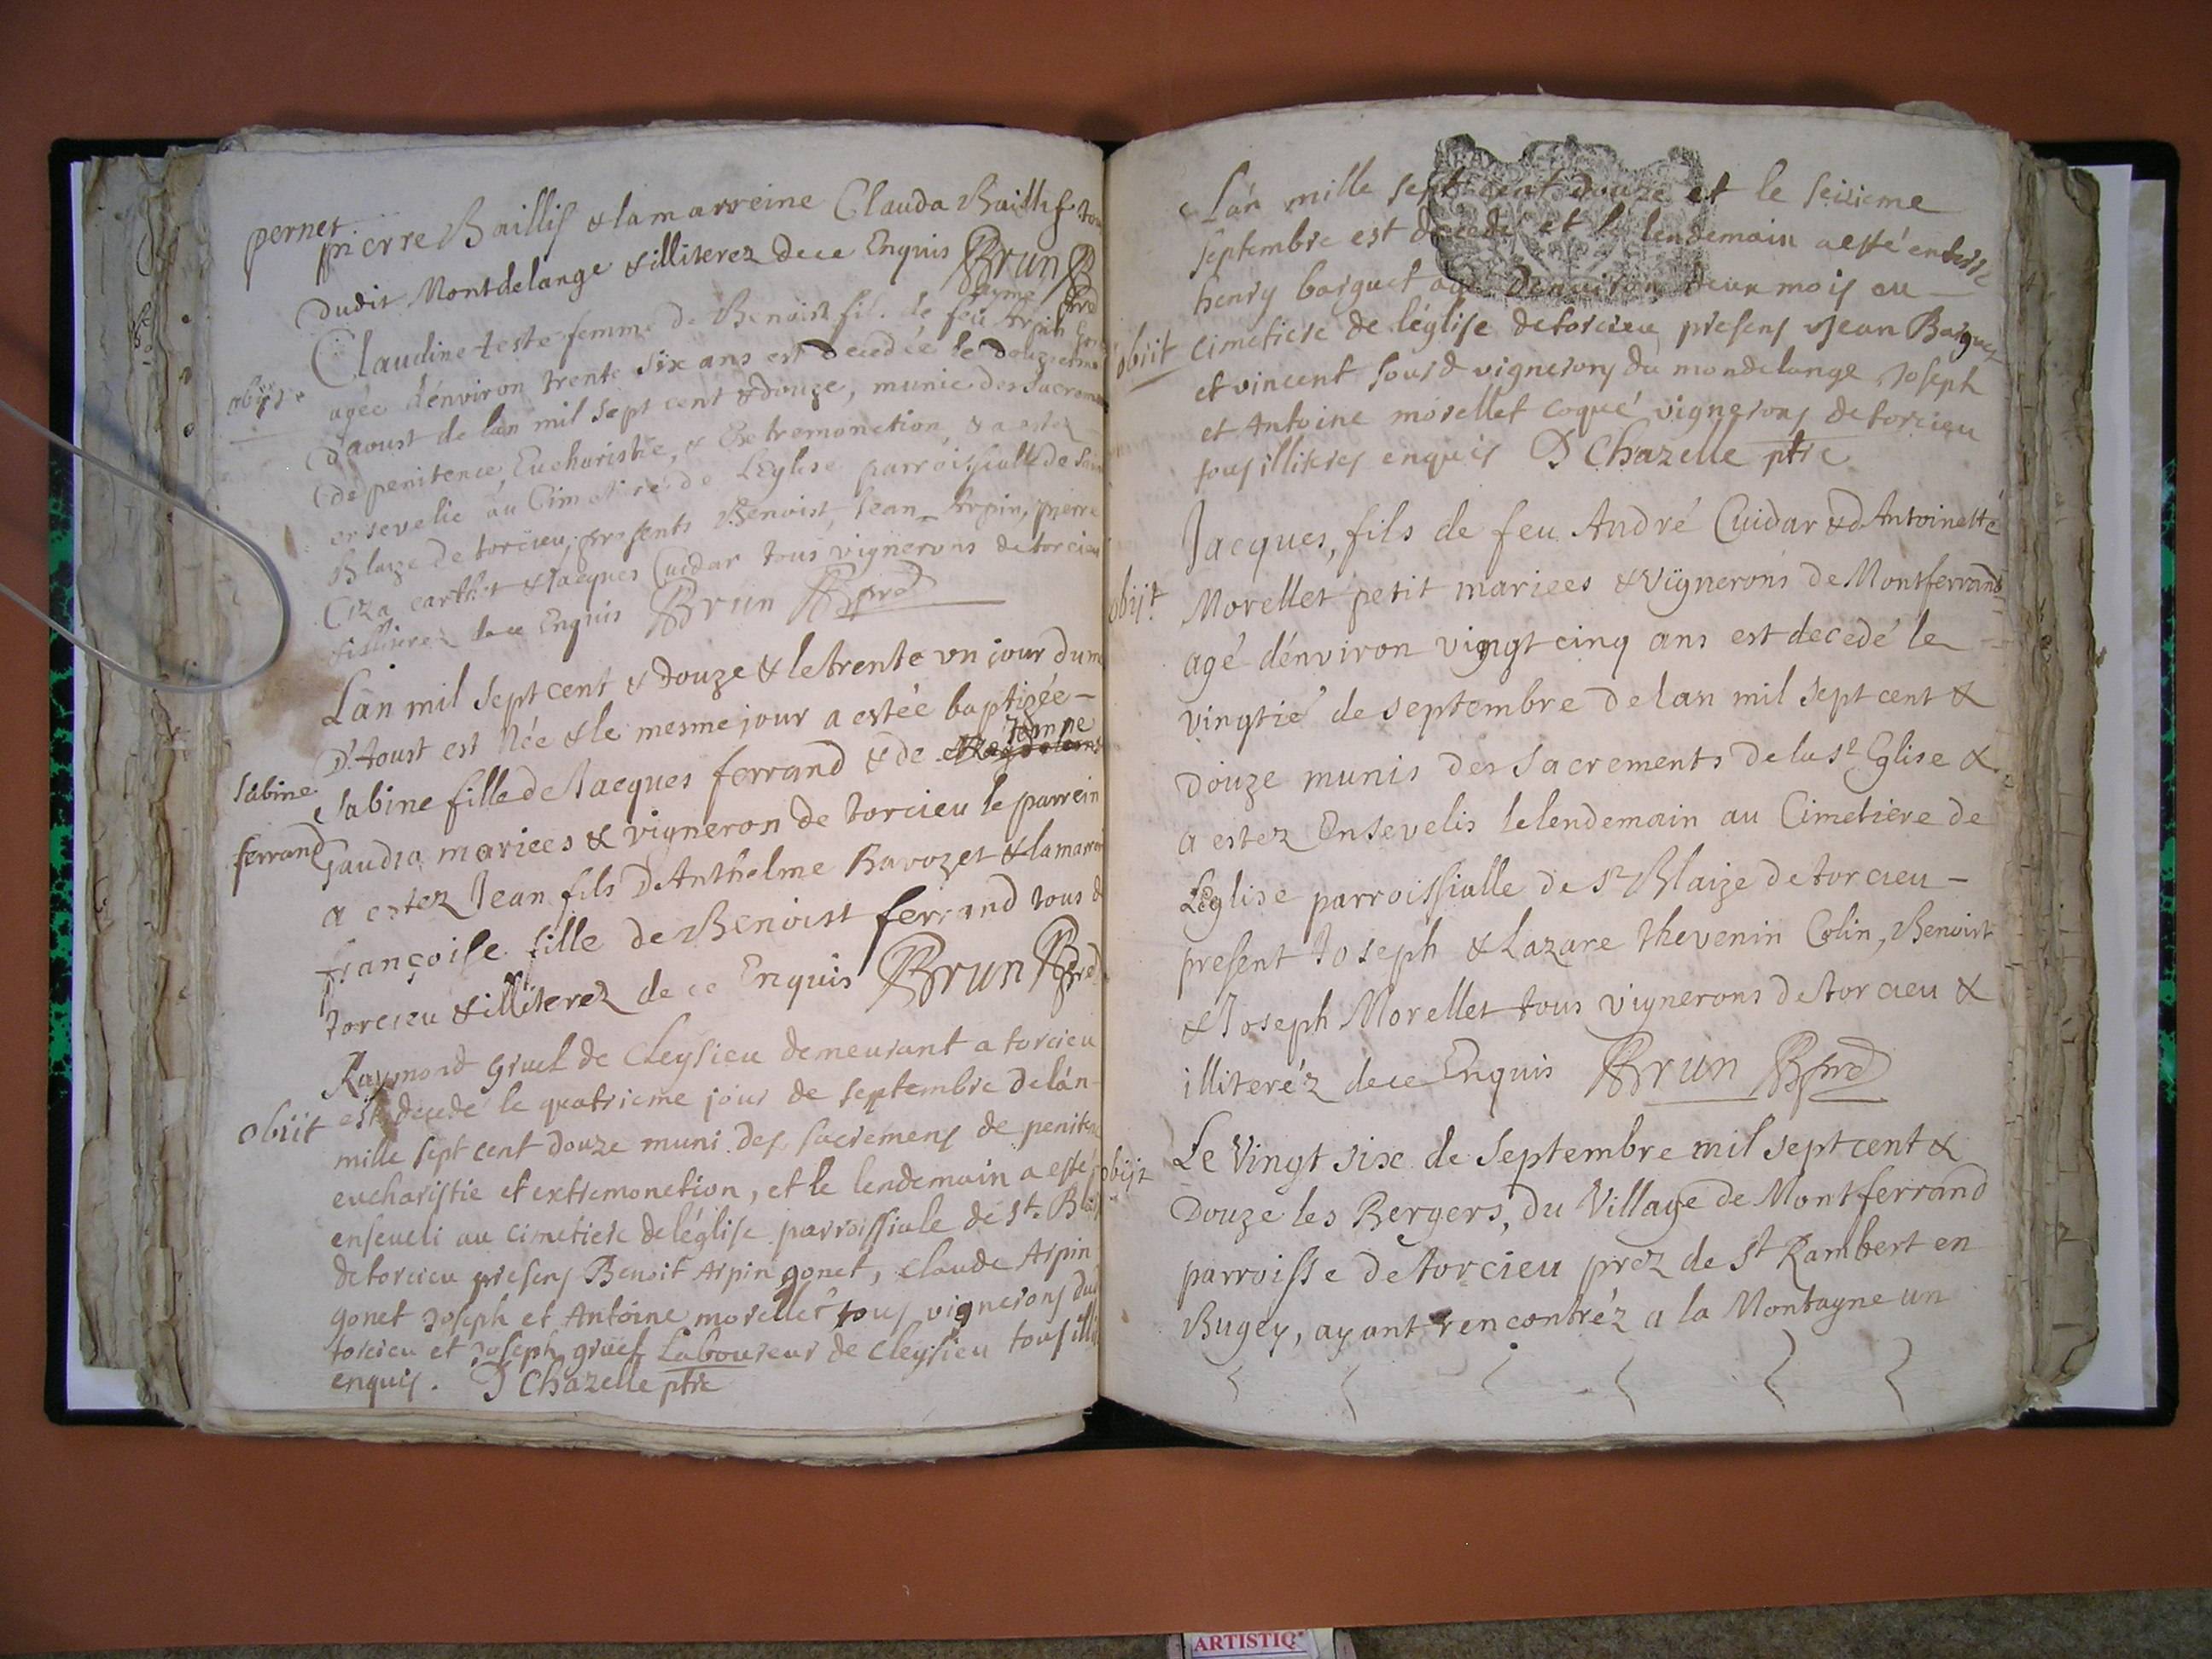 pernet
pierre Baillif & la marreine Clauda Baillif tou
dudit Montdelange & illiterez de ce Enquis Brun
Claudine teste femme de Benoist fil. de feu Arpin
obijt
agée d'environ trente six ans est decedée le douzieme
d'aoust de lan mil sept cent & douze, munie des Sacrem
de penitence, Eucharistie, & Extremonction, & a estez
ensevelie au Cimetire de L'Eglise parroissialle de Sain
Blaize de torcieu, presents Benoist, Jean Arpin, pierre
Ciza & Jacques Cuidar tous vignerons de torcieu
& illiterez de ce Enquis Brun
L'an mil sept cent & douze & le trente un jour du m
D'Aoust est Née & le mesme jour a estée baptizée -
Jeanne
sabine ferrand
Sabine fille de Jacques ferrand & de Magdeleine
Gaudra mariees & vigneron de torcieu le parrein
a estez Jean fils D'Anthelme Ravozet & la marrei
françoise fille de Benoist ferrand tous d
torcieu & illiterez de ce Enquis Brun
Raymond gruel de Cleysieu demeurant a torcieu
obiit
est decedé le quatrieme jour de septembre de lán
mille sept cent douze muni des sacremens de peniten
eucharistie et extremonction, et le lendemain a esté
enseueli au cimetiere de léglise parroissiale de st. Blai
de torcieu presens Benoit Arpin gonet, claude Arpin
gonet Joseph et Antoine morellet tous vignerons du
torcieu et Joseph gruel Laboureur de Cleysieu tous illi
enquis. D Chazelle ptre
Lán mille sept cent douze et le seizieme
septembre est decede et le lendemain a esté enterré
henry barguet agé denuiron deux mois au
obiit
cimetiere de léglise de torcieu presens Jean Barguet
et vincent sourd vignerons du mondelange Joseph
et Antoine morellet coqué vignerons de torcieu
tous illiteres enquis D Chazelle ptre
Jacques, fils de feu André Cuidar & d'Antoinette
obijt
Morellet petit mariees & Vignerons de Montferrand
agé d'environ vingt cinq ans est decedé le
vingtié de septembre de lan mil sept cent &
douze munis des Sacrements de la ste Eglise &
a estez Ensevelis le lendemain au Cimetiere de
L'Eglise parroissialle de st Blaize de torcieu -
present Joseph & Lazare thevenin Colin, Benoist
& Joseph Morellet tous vignerons de torcieu &
illiteréz de ce Enquis Brun
obijt
Le Vingt six de Septembre mil sept cent &
Douze les Bergers, du Village de Montferrand
parroisse de torcieu prez de st Rambert en
Bugey, ayant rencontréz a la Montagne un
ARTISTIQ